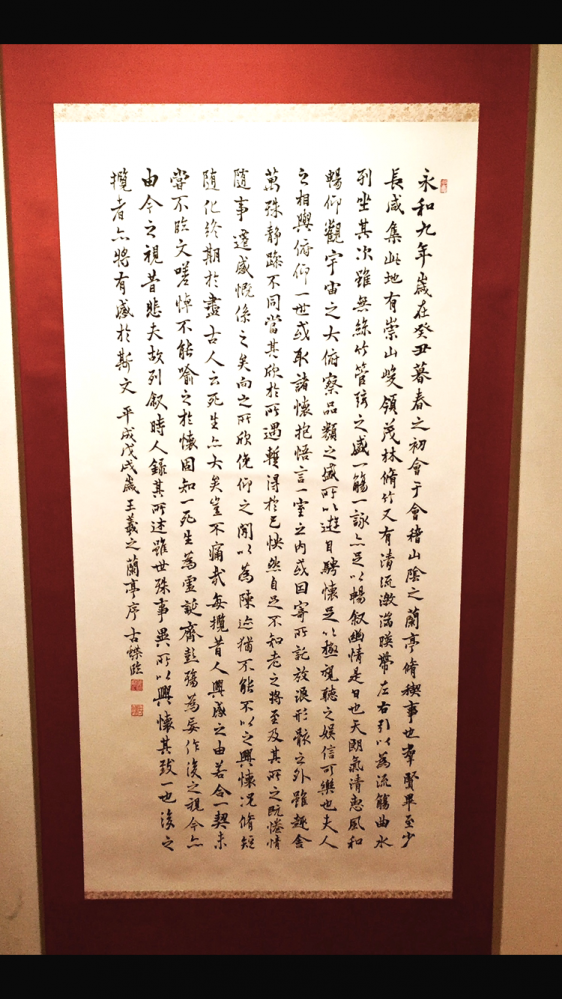 永和九年歲在癸丑暮春之初會于會稽山陰之蘭亭脩禊事也羣賢畢至少
長咸集此地有崇山峻領茂林脩竹又有清流激湍暎帶左右引以為流觴曲水
列坐其次雖無絲竹管弦之盛一觴一詠亦足以暢敘幽情是日也天朗氣清惠風和
暢仰觀宇宙之大俯察品類之盛所以遊目騁懷足以極視聽之娛信可樂也夫人
之相與俯仰一世或取諸懷抱悟言一室之內或因寄所託放浪形骸之外雖趣舍
萬殊靜躁不同當其欣於所遇暫得於己怏然自足不知老之將至及其所之既惓情
隨事遷感慨係之矣向之所欣俛仰之閒以為陳迹猶不能不以之興懷況脩短
隨化終期於盡古人云死生亦大矣豈不痛哉每攬昔人興感之由若合一契未
嘗不臨文嗟悼不能喻之於懷固知一死生為虛誕齊彭殤為妄作後之視今亦
由今之視昔悲夫故列敘時人錄其所述雖世殊事異所以興懷其致一也後之
攬者亦將有感於斯文 平成戊戌歲王羲之蘭亭序 古蝶臨